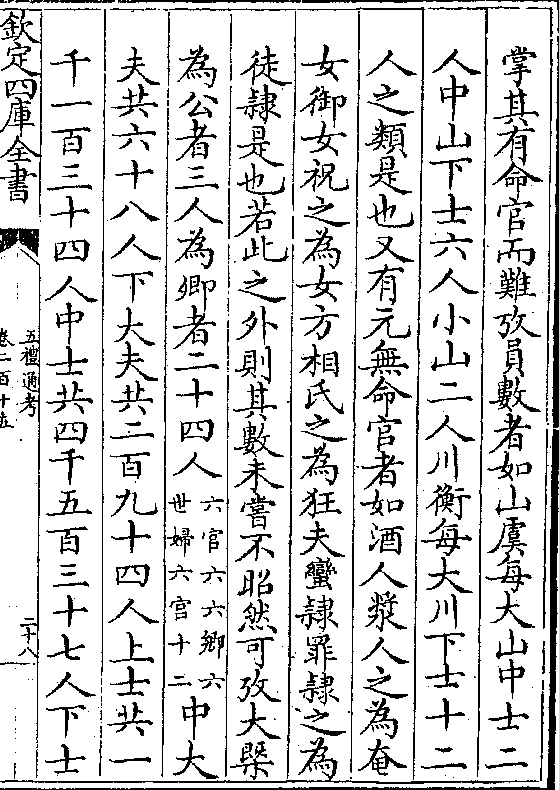 掌其有命官而難攷員數者如山虞每大山中士二
人中山下士六人小山二人川衡每大川下士十二
人之類是也又有元無命官者如酒人漿人之為奄
女御女祝之為女方相氏之為狂夫蠻隸罪隸之為
徒隸是也若此之外則其數未嘗不昭然可攷大槩
為公者三人為卿者二十四人六官六六鄉六世婦六官十二中大
夫共六十八人下大夫共二百九十四人上士共一
千一百三十四人中士共四千五百三十七人下士
欽定四庫全書
五禮通考
卷二百十五
二十八